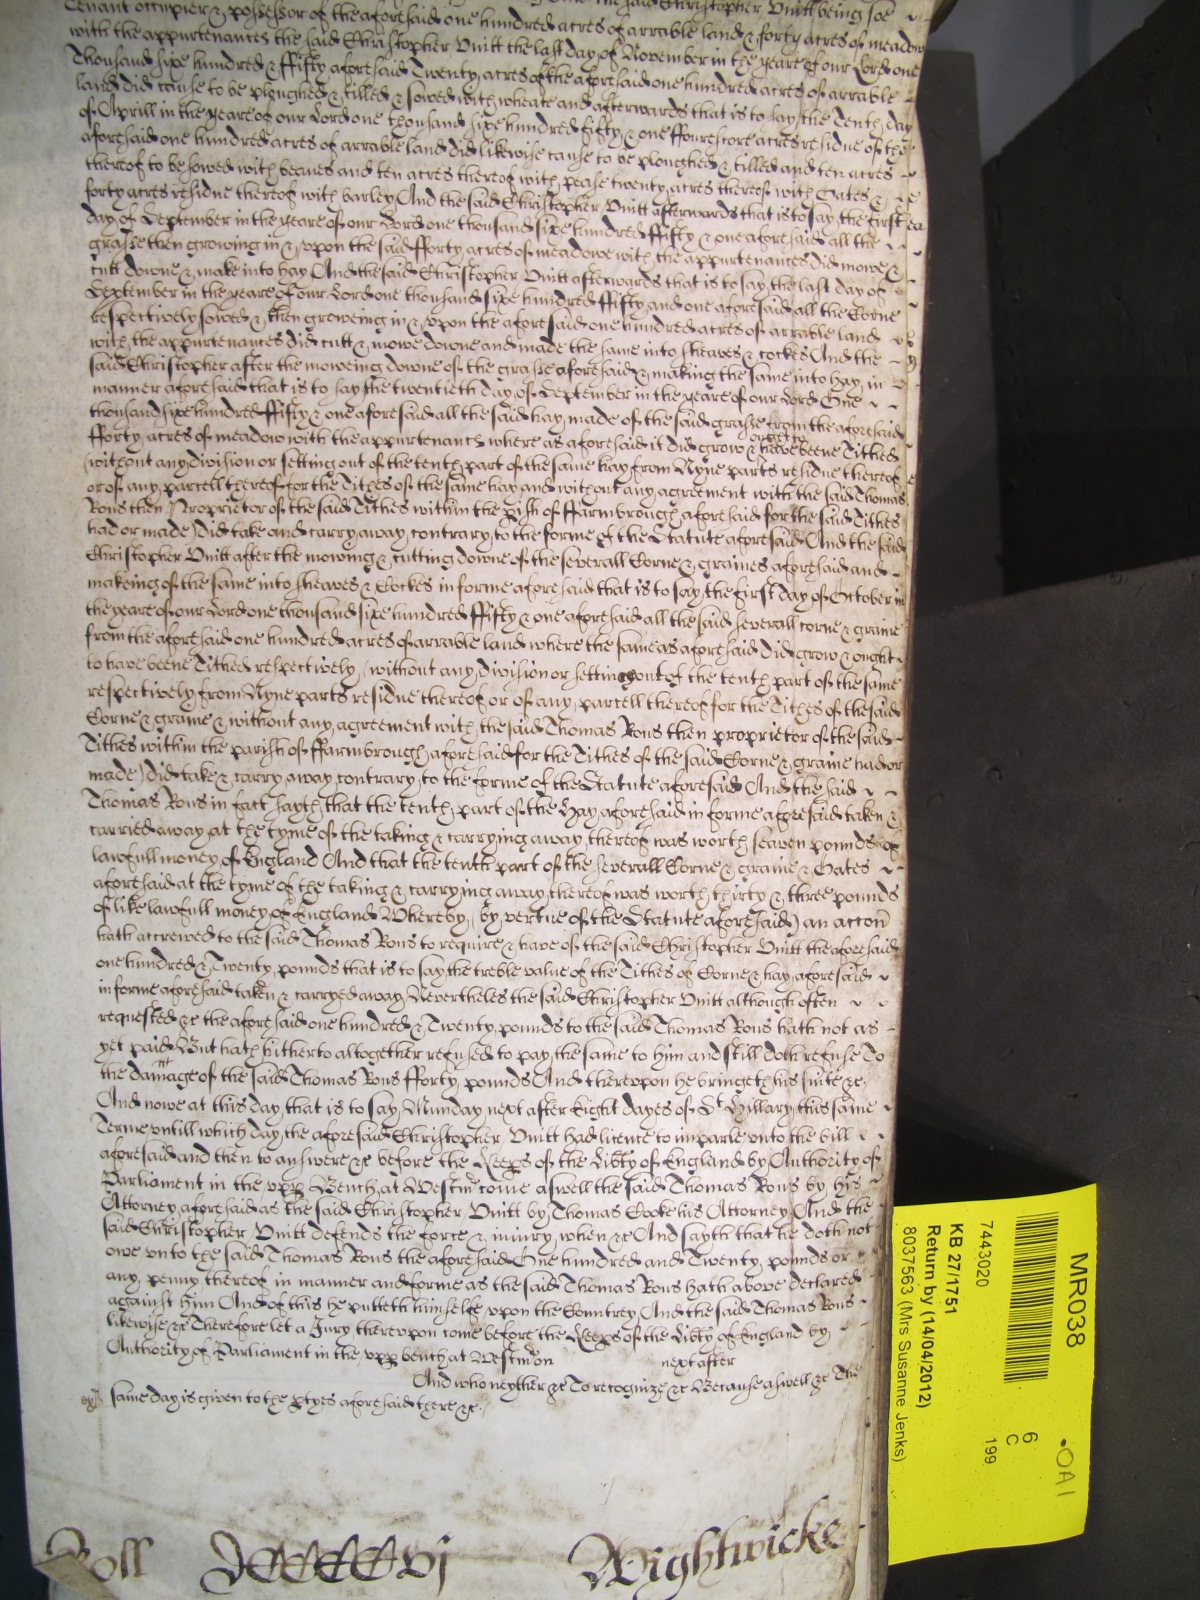 Tenant occupier & possessor of the aforesaid one hundred acres of arrable land & forty acres of meadow
with the appurtenances the said Christopher Vnitt the last day of November in the yeare of our Lord one
Thousand sixe hundred & ffifty aforesaid Twenty acres of the aforesaid one hundred acres of arrable
land did cause to be ploughed & tilled & sowed with wheate and afterwards that is to say the Tenth day
of Aprill in the yeare of our Lord one thousand sixe hundred fifty & one ffourescore acres residue of the
aforesaid one hundred acres of arrable land did likewise cause to be ploughed & tilled and ten acres
thereof to be sowed with beanes and ten acres thereof with pease twenty acres thereof with Oates &
forty acres residue thereof with barley And the said Christopher Vnitt afterwards that is to say the first
day of September in the yeare of our Lord one thousand sixe hundred ffifty & one aforesaid all the
grasse then growing in & vpon the said fforty acres of meadowe with the appurtenances did mowe &
cutt downe & make into hay And the said Christopher Vnitt afterwards that is to say the last day of
September in the yeare of our Lord one thousand sixe hundred ffifty and one aforesaid all the Corne
respectively sowed & then groweing in & vpon the aforesaid one hundred acres of arrable land
with the appurtenances did cutt & mowe downe and made the same into sheaves & cockes And the
said Christopher after the moweing downe of the grasse aforesaid & making the same into hay in
manner aforesaid that is to say the twentieth day of September in the yeare of our Lord One
thousand sixe hundred ffifty & one aforesaid all the said hay made of the said grasse from the aforesaid
fforty acres of meadow with the appurtenancs where as aforesaid it did grow & ought to have beene Tithed
(without any division or setting out of the tenth part of the same hay from Nyne parts residue thereof
or of any parcell thereof for the Tithes of the same hay and without any agreement with the said Thomas
Rous then Proprietor of the said Tithes within the pish of ffarmbrough aforesaid for the said Tithes
had or made) did take and carry away contrary to the forme of the Statute aforesaid And the said
Christopher Vnitt after the mowing & cutting downe of the severall Corne & graines aforesaid and
makeing of the same into sheaves & Cockes in forme aforesaid that is to say the first day of October in
the yeare of our Lord one thousand sixe hundred ffifty & one aforesaid all the said severall corne & graine
from the aforesaid one hundred acres of arrable land where the same as aforesaid did grow & ought
to have beene Tithed respectively (without any division or setting out of the tenth part of the same
respectively from Nyne parts residue thereof or of any parcell thereof for the Tithes of the said
Corne & graine & without any agreement with the said Thomas Rous then proprietor of the said
Tithes within the parish of ffarmbrough aforesaid for the Tithes of the said Corne & graine had or
made) did take & carry away contrary to the forme of the Statute aforesaid And the said
Thomas Rous in fact sayth that the tenth part of the Hay aforesaid in forme aforesaid taken &
carried away at the tyme of the taking & carrying away thereof was worth seaven pounds of
lawfull money of England And that the tenth part of the severall Corne & graine & Oates
aforesaid at the tyme of the taking & carrying away thereof was worth thirty & three pounds
of like lawfull money of England Whereby (by vertue of the Statute aforesaid) an accon
hath accrewed to the said Thomas Rous to require & have of the said Christopher Vnitt the aforesaid
one hundred & Twenty pounds that is to say the treble value of the Tithes of Corne & hay aforesaid
in forme aforesaid taken & carryed away Nevertheles the said Christopher Vnitt although often
requested &c the aforesaid one hundred & Twenty pounds to the said Thomas Rous hath not as
yet paid But hath hitherto altogether refused to pay the same to him and still doth refuse To
the damage of the said Thomas Rous fforty pounds And therevpon he bringeth his suite &c.
And nowe at this day that is to say Munday next after Eight dayes of St Hillary this same
Terme vntill which day the aforesaid Christopher Vnitt had licence to imparle vnto the bill
aforesaid and then to answere &c before the Keeps of the Libty of England by Authority of
Parliament in the vpp Bench at Westm come aswell the said Thomas Rous by his
Attorney aforesaid as the said Christopher Vnitt by Thomas Cooke his Attorney And the
said Christopher Vnitt defends the force & iniury when &c And sayth that he doth not
owe vnto the said Thomas Rous the aforesaid One hundred and Twenty pounds or
any penny thereof in manner and forme as the said Thomas Rous hath above declared
against him And of this he putteth himselfe vpon the Countrey And the said Thomas Rous
likewise &c Therefore let a Jury therevpon come before the Keeps of the Libty of England by
Authority of Parliament in the vpp bench at Westm on next after
And who neyther &c To recognize &c Because aswell &c The
same day is given to the ptyes aforesaid there &c.
Roll DCCCCvj Wightwicke
MR038
7443020
KB 27/1751
Return by (14/04/2012)
8037563 (Mrs Susanne Jenks)
6
C
199
•OA1